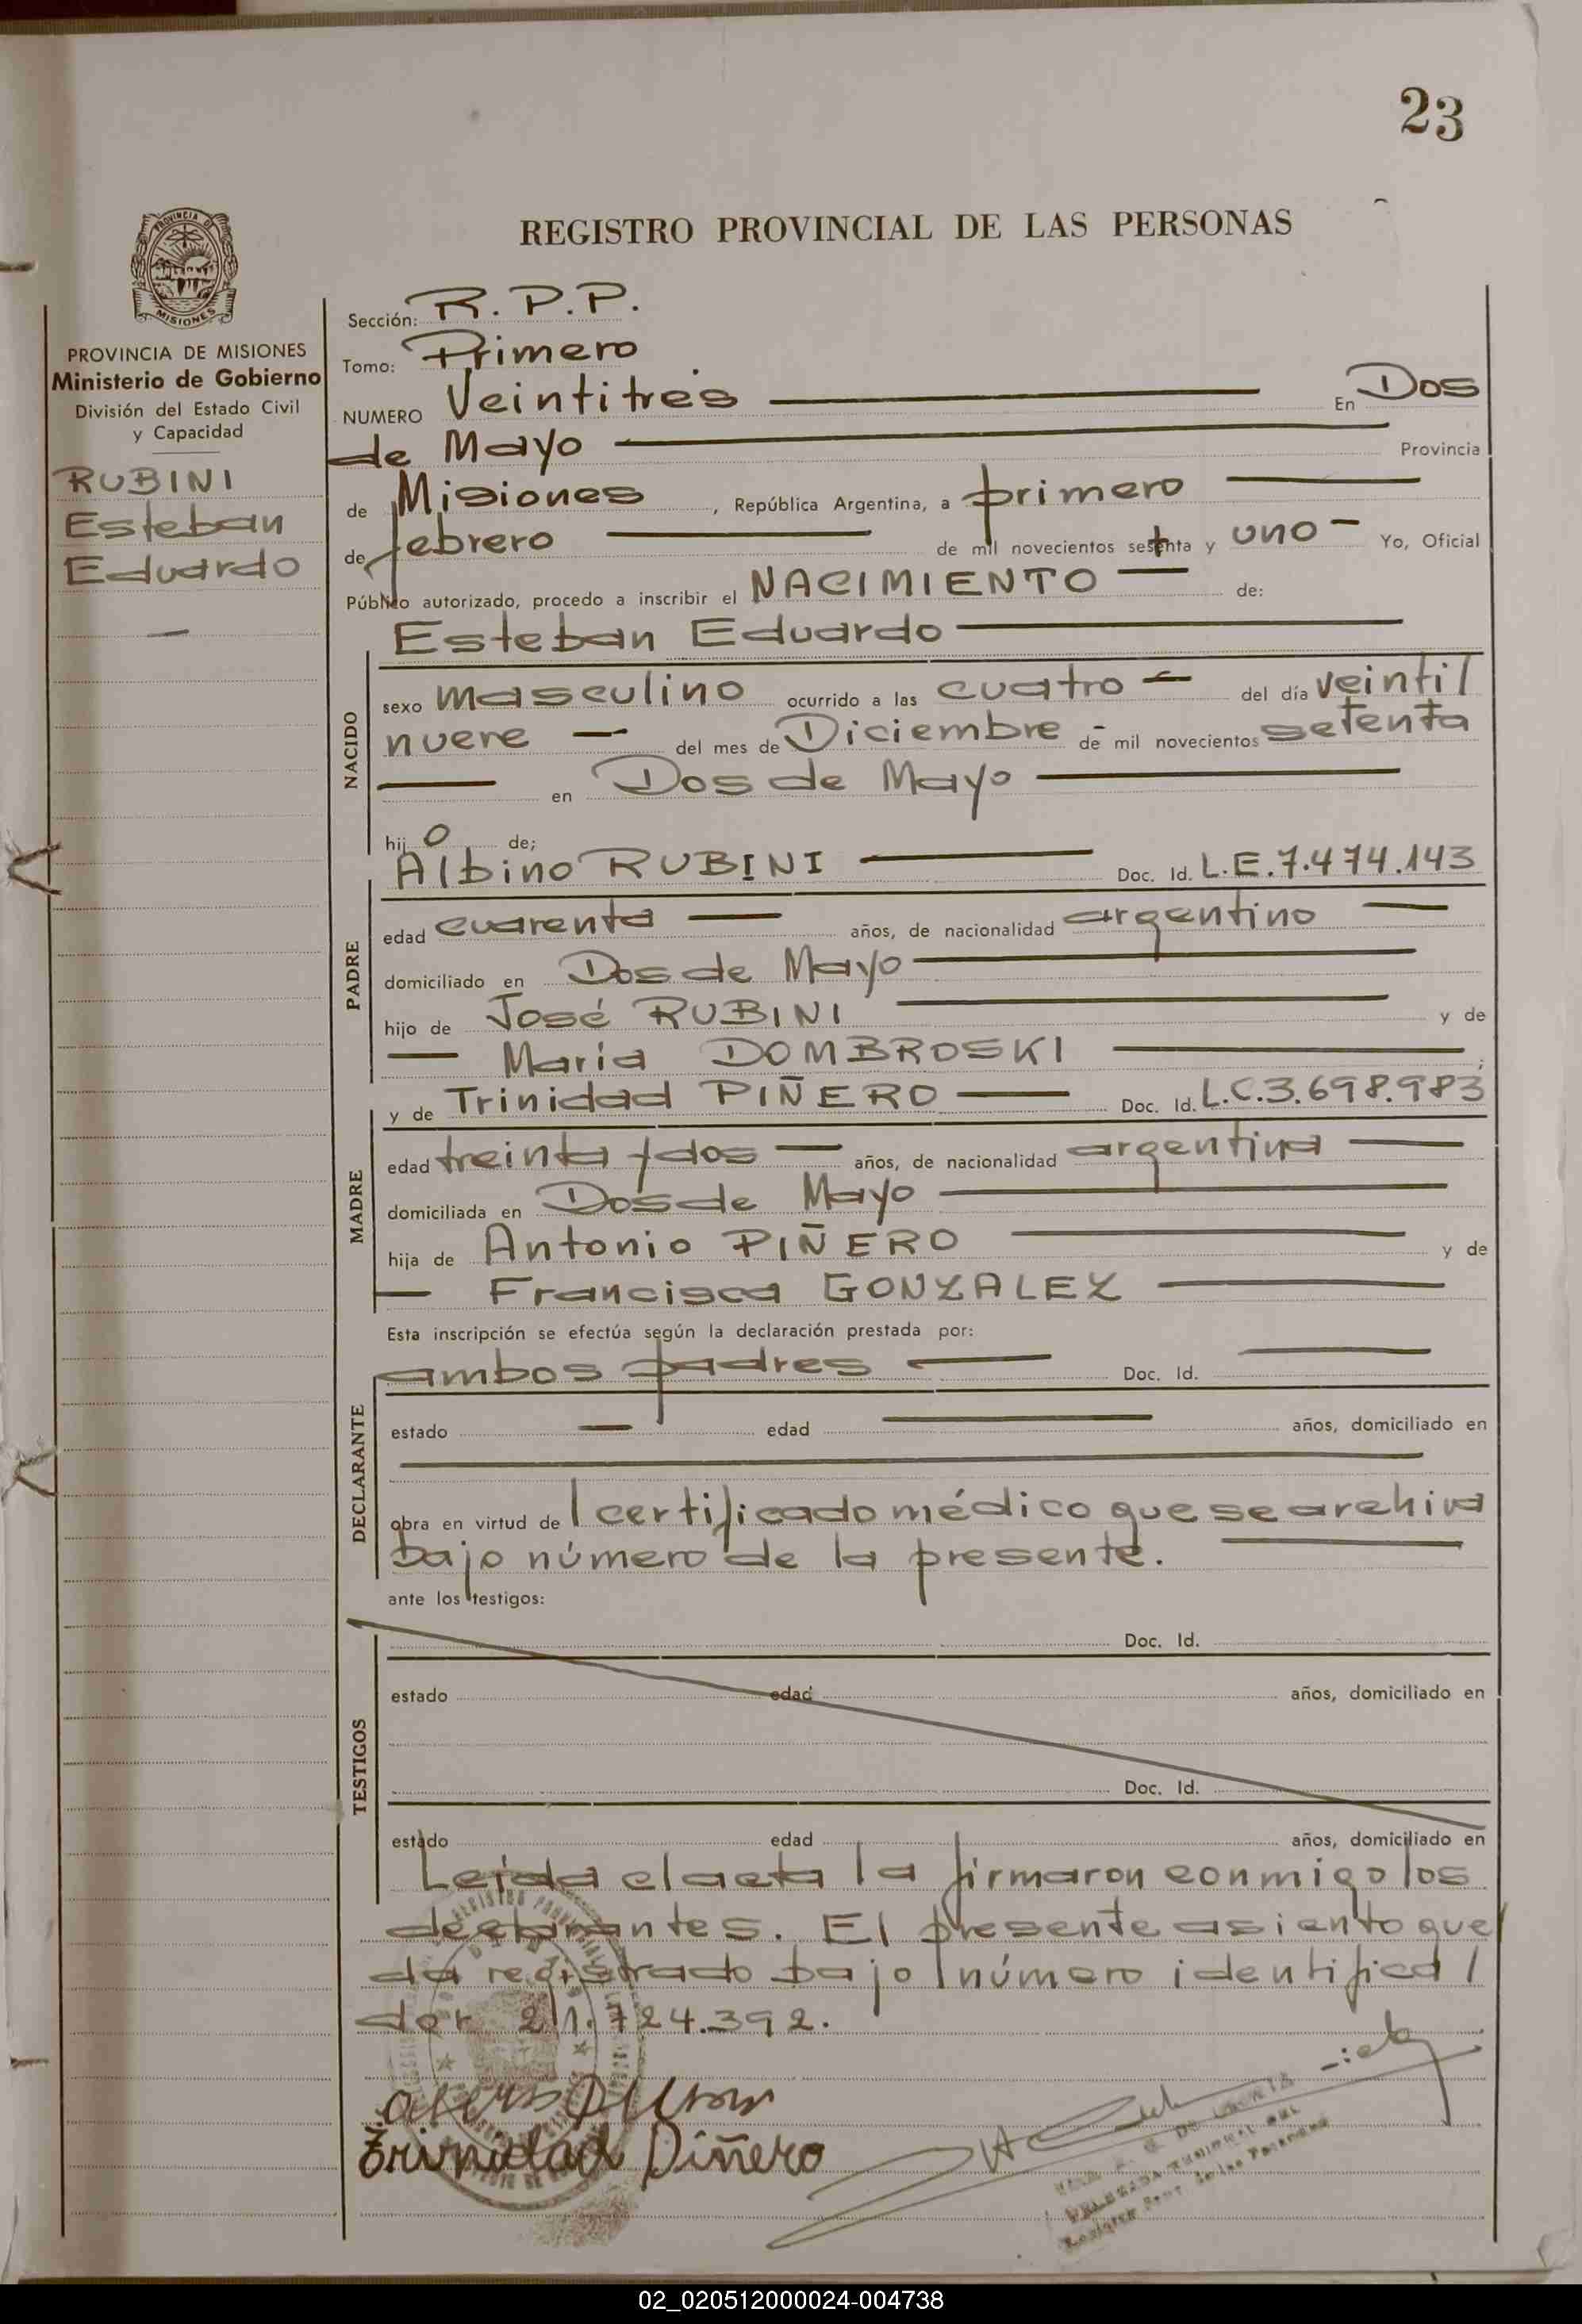 23
REGISTRO PROVINCIAL DE LAS PERSONAS
PROVINCIA DE MISIONES
Ministerio de Gobierno
División del Estado Civil
y Capacidad
RUBINI
Esteban
Eduardo
Sección: R.P.P.
Tomo: Primero
NUMERO Veintitrés En Dos
de Mayo Provincia
de Misiones, República Argentina, a primero
de febrero de mil novecientos setenta y uno Yo, Oficial
Público autorizado, procedo a inscribir el NACIMIENTO de:
Esteban Eduardo
NACIDO
sexo masculino ocurrido a las cuatro del día veinti/
nueve del mes de Diciembre de mil novecientos setenta
en Dos de Mayo
hijo de;
PADRE
Albino RUBINI Doc. Id. L.E.7.474.143
edad cuarenta años, de nacionalidad argentino
domiciliado en Dos de Mayo
hijo de José RUBINI y de
María DOMBROSKI;
MADRE
y de Trinidad PIÑERO Doc. Id. L.C.3.698.983
edad treinta y dos años, de nacionalidad argentina
domiciliada en Dos de Mayo
hija de Antonio PIÑERO y de
Francisca GONZALEZ
Esta inscripción se efectúa según la declaración prestada por:
DECLARANTE
ambos padres Doc. Id.
estado edad años, domiciliado en
obra en virtud de/certificado médico que se archiva
bajo número de la presente.
ante los testigos:
TESTIGOS
Doc. Id.
estado edad años, domiciliado en
Doc. Id.
estado edad años, domiciliado en
Leída el acta la firmaron conmigo los
declarantes. El presente asiento que
da registrado bajo/número identifica/
dor 21.724.392.
Trinidad Piñero
02_020512000024-004738